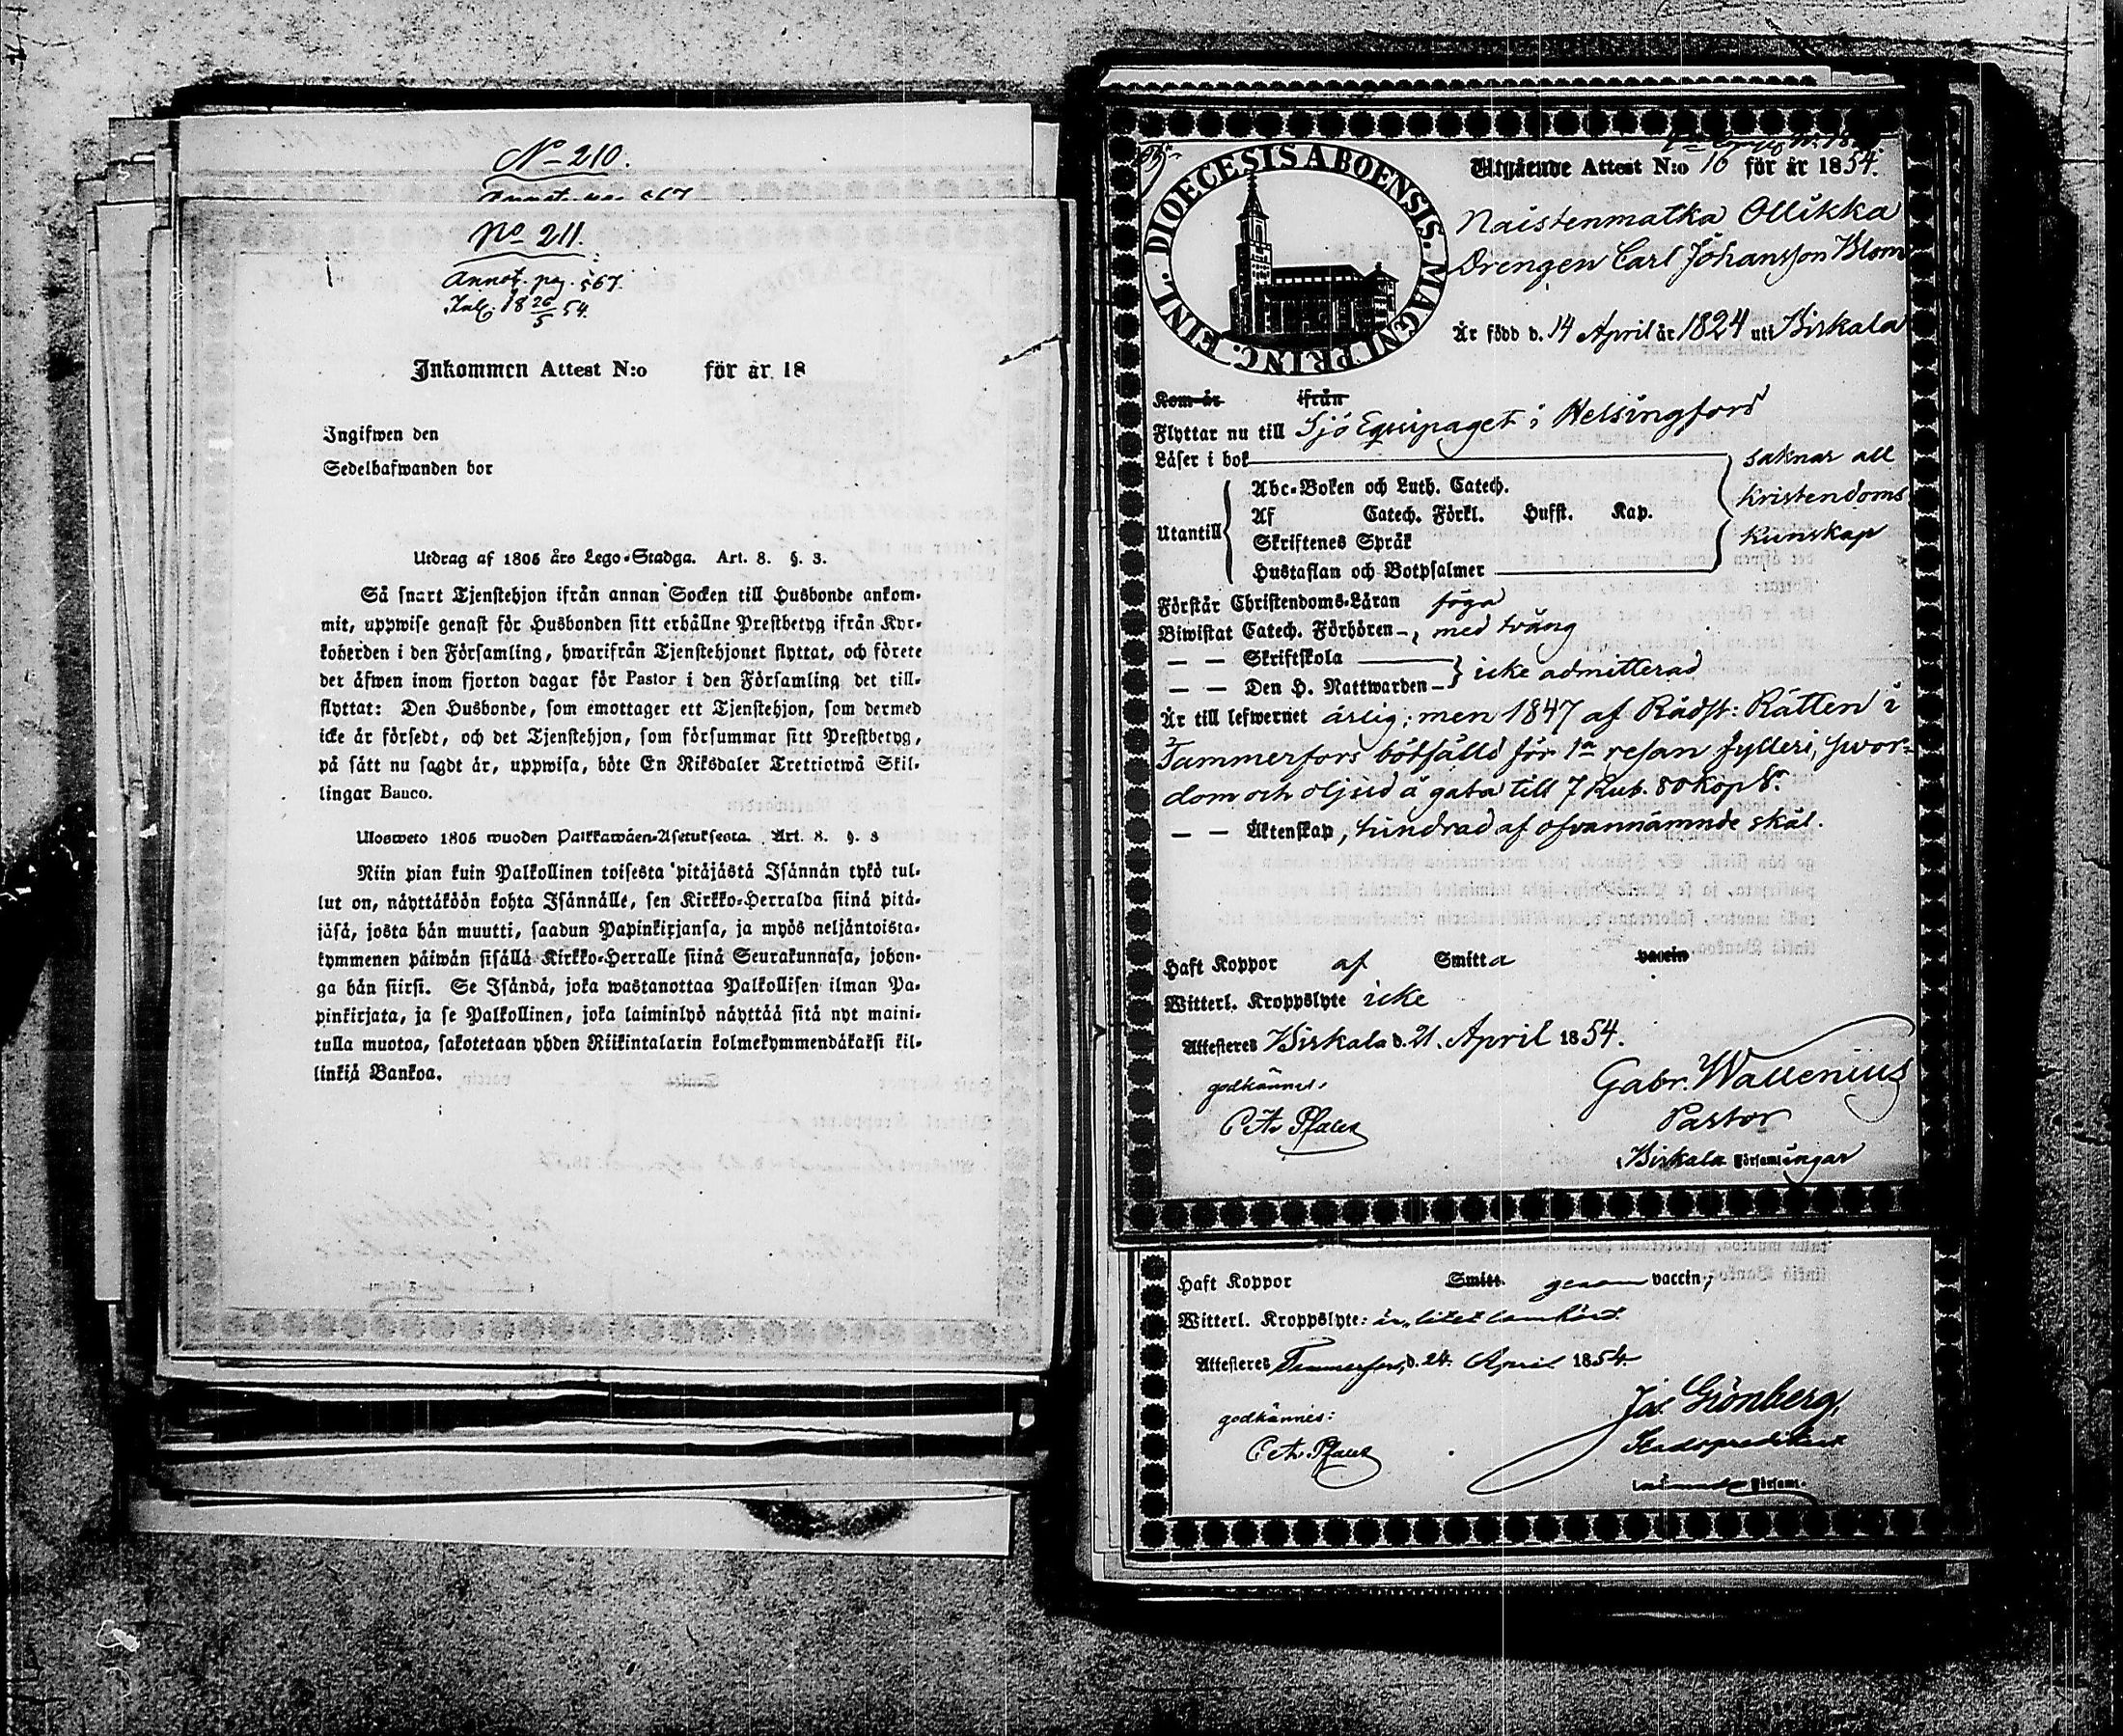 No 210.
No 211.
Annot. pag. 567.
Inl. 18 26/5 54.
Inkommen Attest N:o för år 18
Ingifwen den
Sedelhafwanden bor
Utdrag af 1805 års Lego-Stadga. Art. 8. §. 3.
Så snart Tjenstehjon ifrån annan Socken till Husbonde ankom-
mit, uppwise genast för Husbonden sitt erhållne Prestbetyg ifrån Kyr-
koherden i den Församling, hwarifrån Tjenstehjonet flyttat, och förete
det äfwen inom fjorton dagar för Pastor i den Församling det till-
flyttat: Den Husbonde, som emottager ett Tjenstehjon, som dermed
icke är försedt, och det Tjenstehjon, som försummar sitt Prestbetyg,
på sätt nu sagdt är, uppwisa, böte En Riksdaler Trettiotwå Skil-
lingar Banco.
Ulosweto 1805 wuoden Palkkawäen-Asetuksesta. Art. 8. §. 3
Niin pian kuin Palkollinen toisesta pitäjästä Isännän tykö tul-
lut on, näyttäköön kohta Isännälle, sen Kirkko-Herralda siinä pitä-
jäsä, josta hän muutti, saadun Papinkirjansa, ja myös neljäntoista-
kymmenen päiwän sisällä Kirkko-Herralle siinä Seurakunnasa, johon-
ga hän siirsi. Se Isändä, joka wastanottaa Palkollisen ilman Pa-
pinkirjata, ja se Palkollinen, joka laiminlyö näyttää sitä nyt maini-
tulla muotoa, sakotetaan yhden Riikintalarin kolmekymmendäkaksi kil-
linkiä Bankoa.
DIOECESIS ABOENSIS. MAGNI PRINC. FINL.
Utgående Attest N:o 16 för år 1854.
Naistenmatka Ollikka
Drengen Carl Johansson Blom
Är född d. 14 April år 1824 uti Birkala
Kom år ifrån
Flyttar nu till Sjö Equipaget i Helsingfors
Läser i bok
saknar all
kristendoms
kunskap
Utantill
Abc-Boken och Luth. Catech.
Af Catech. Förkl. Hufst. Kap.
Skriftenes Språk
Hustaflan och Botpsalmer
Förstår Christendoms-Läran föga
Biwistat Catech. Förhören med tvång
— — Skriftskola
— — Den H. Nattwarden icke admitterad
Är till lefwernet ärlig; men 1847 af Rådst: Rätten i
Tammerfors bötfälld för 1a resan fylleri, swor-
dom och oljud å gata till 7 Rub. 80 kop Sr.
— — Äktenskap, hindrad af ofvannämnde skäl.
Haft Koppor af Smitta vaccin
Witterl. Kroppslyte icke
Attesteres Birkala d. 21. April 1854.
godkännes.
Gabr. Wallenius
Pastor
i Birkala Församlingar
Haft Koppor Smitt. genom vaccin;
Witterl. Kroppslyte: är litet lomhörd.
Attesteres Tammerfors, d. 24. April 1854
godkännes:
Jas. Grönberg,
Stadspredikant
Församl.